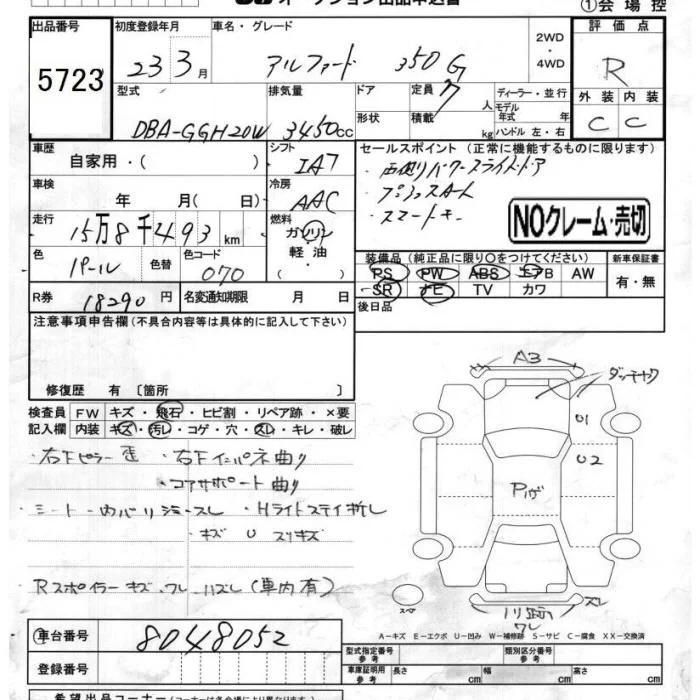 ①会場控
出品番号
5723
初度登録年月
23 3月
車名・グレード
アルファード 350G
2WD
・
4WD
評価点
R
型式
DBA-GGH20W
排気量
3450cc
ドア
形状
定員
7人
積載
kg
ディーラー・並行
モデル年式 年
ハンドル 左・右
外装 内装
C C
車歴
自家用・( )
シフト
IA7
セールスポイント(正常に機能するものに限ります)
・両側パワースライドドア
・プッシュスタート
・スマートキー
NOクレーム・売切
車検
年 月( 日)
冷房
AAC
走行
15万8千493km
燃料
ガソリン
・
軽・油
色
パール
色替
色コード
070
装備品(純正品に限り○をつけてください)
PS PW ABS エアB AW
SR ナビ TV カワ
新車保証書
有・無
R券
18290円
名変通知期限 月 日
後日品
注意事項申告欄(不具合内容等は具体的に記入して下さい)
修復歴 有〔箇所 〕
検査員
記入欄
FW キズ・飛石・ヒビ割・リペア跡・×要
内装 キズ・汚レ・コゲ・穴・スレ・キレ・破レ
・右Fピラー歪 ・右Fインパネ曲り
・コアサポート曲り
・シート・内バリ ・Hライトステイ折レ
・キズ U スリキズ
Rスポイラーキズ・ワレ・ハズレ(車内有)
A3
U1
U2
スペア
ワレ
A-キズ E-エクボ U-凹み W-補修跡 S-サビ C-腐食 XX-交換済
車台番号
8048052
登録番号
型式指定番号
参考
類別区分番号
参考
車庫証明用
参考
長さ cm 幅 cm 高さ cm
希望出品コーナー